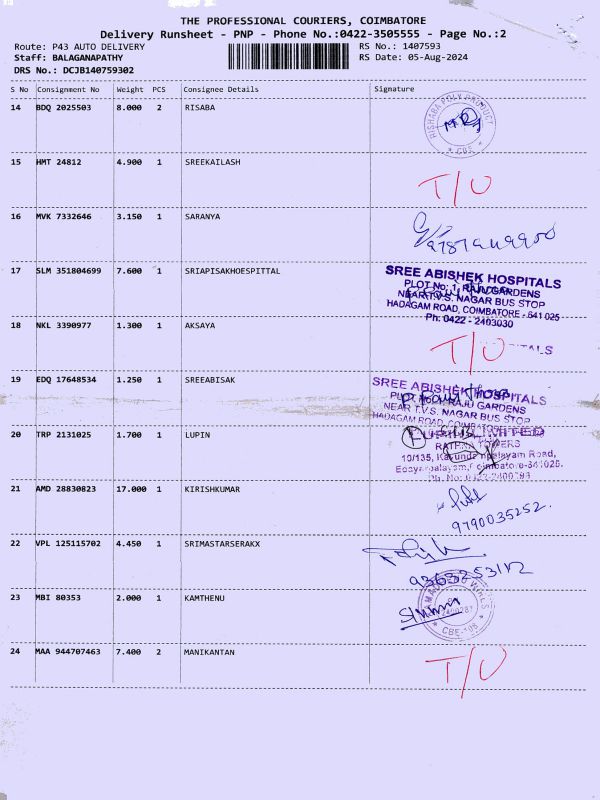 THE PROFESSIONAL COURIERS, COIMBATORE
Delivery Runsheet - PNP - Phone No.:0422-3505555 - Page No.:2
Route: P43 AUTO DELIVERY RS No.: 1407593
Staff: BALAGANAPATHY RS Date: 05-Aug-2024
DRS No.: DCJB140759302
S No Consignment No Weight PCS Consignee Details Signature
14 BDQ 2025503 8.000 2 RISABA
RISHABA POLY PRODUCT
* CBE *
15 HMT 24812 4.900 1 SREEKAILASH
T/U
16 MVK 7332646 3.150 1 SARANYA
17 SLM 351804699 7.600 1 SRIAPISAKHOESPITTAL
SREE ABISHEK HOSPITALS
PLOT No: 1, RAJU GARDENS
NEAR T.V.S. NAGAR BUS STOP
HADAGAM ROAD, COIMBATORE - 641 025
Ph: 0422 - 2403030
18 NKL 3390977 1.300 1 AKSAYA
T/U
19 EDQ 17648534 1.250 1 SREEABISAK
SREE ABISHEK HOSPITALS
PLOT No: 1, RAJU GARDENS
NEAR T.V.S. NAGAR BUS STOP
HADAGAM ROAD, COIMBATORE
20 TRP 2131025 1.700 1 LUPIN
LUPIN LIMITED
TOWERS
10/135, Road,
21 AMD 28830823 17.000 1 KIRISHKUMAR
9790035252.
22 VPL 125115702 4.450 1 SRIMASTARSERAKX
23 MBI 80353 2.000 1 KAMTHENU
24 MAA 944707463 7.400 2 MANIKANTAN
T/U